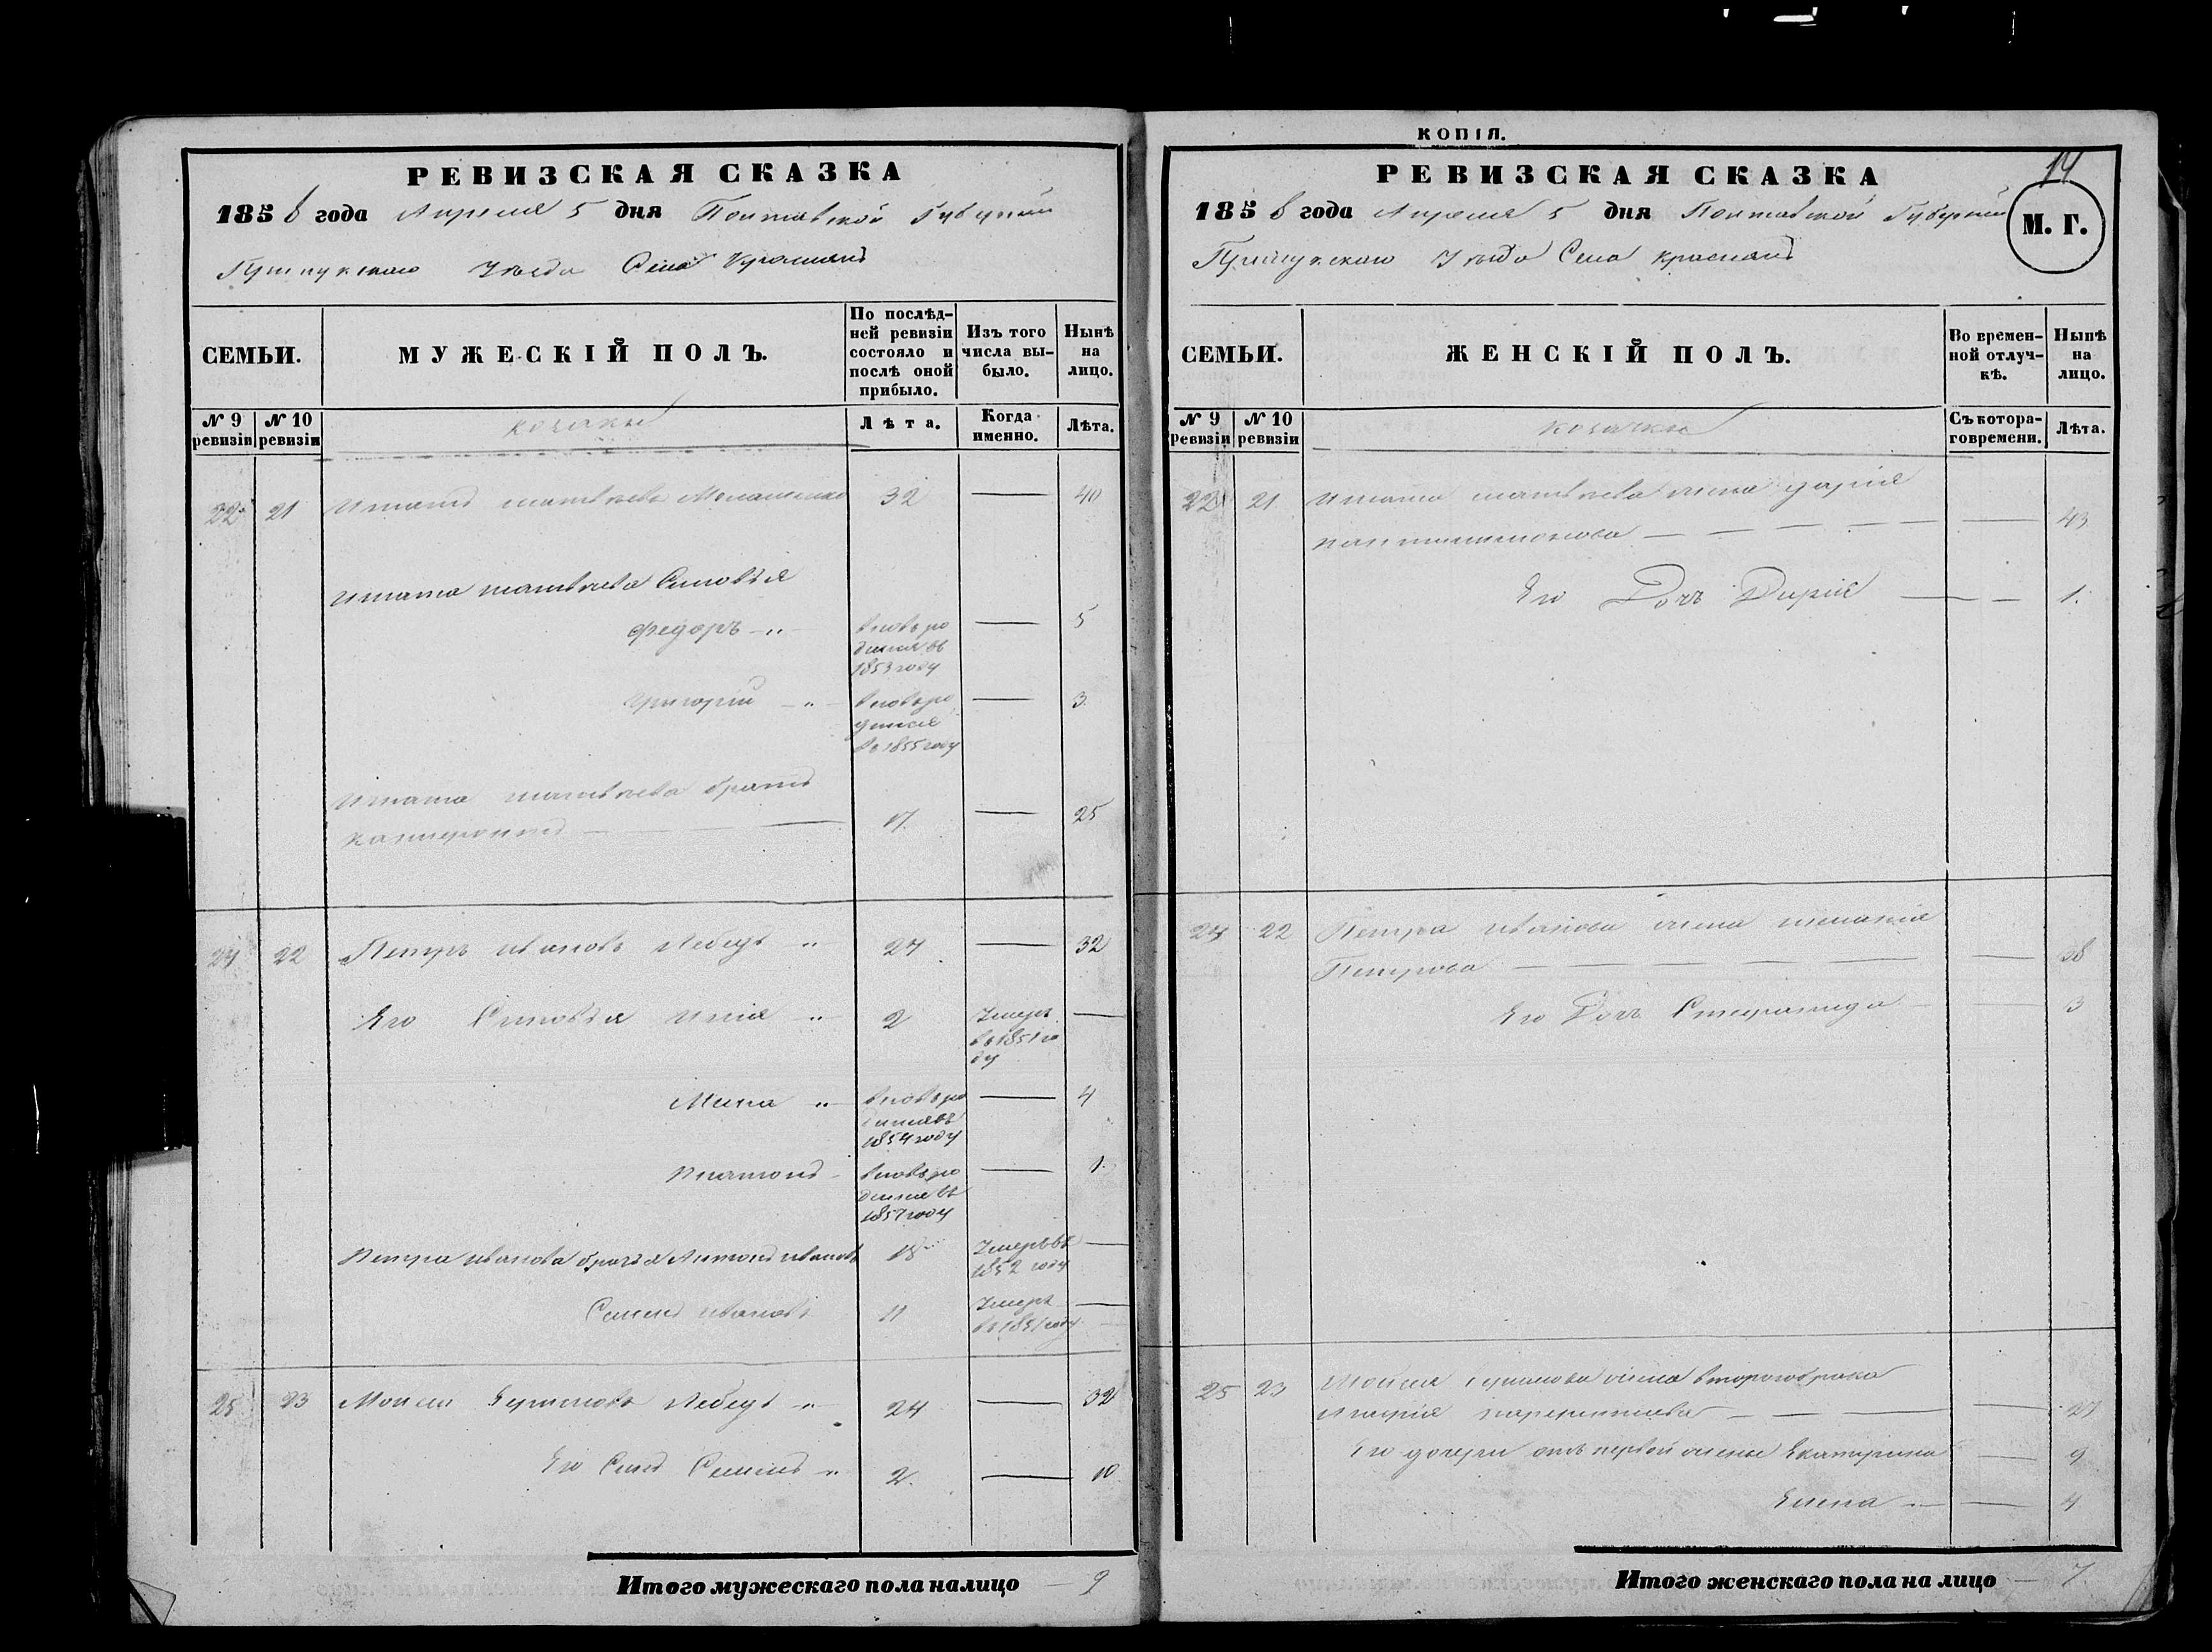 РЕВИЗСКАЯ СКАЗКА
1858 года Апреля 5 дня Полтавской Губернии
Уезда Села
СЕМЬИ.
МУЖЕСКІЙ ПОЛЪ.
По послѣд-
ней ревизіи
состояло и
послѣ оной
прибыло.
Изъ того
числа вы-
было.
Нынѣ
на
лицо.
№ 9
ревизіи
№ 10
ревизіи
козаки
Лѣта.
Когда
именно.
Лѣта.
22 21 32 — 40
Синовья
Федоръ — вновь ро — 5
дился въ
1853 году
Григорий — вновь ро — 3
дился
въ 1855 году
братъ
17 — 25
24 22 Петръ Ивановъ Лебедь 24 — 32
Его Синовья 2 Умеръ —
въ 1851 го
ду
Мина вновь ро — 4
дился въ
1854 году
Платонъ вновь ро — 1
дился въ
1857 году
Петра Иванова братья Антонъ Ивановъ 18 Умеръ въ —
1852 году
Семенъ Ивановъ 11 Умеръ —
въ 1851 году
25 23 Моисей Лебедь 24 — 32
Его Синъ Семенъ 2 — 10
Итого мужескаго пола налицо — 9
КОПІЯ.
14
РЕВИЗСКАЯ СКАЗКА
1858 года Апреля 5 дня Полтавской Губернии
М. Г.
Уезда Села
СЕМЬИ.
ЖЕНСКІЙ ПОЛЪ.
Во времен-
ной отлуч-
кѣ.
Нынѣ
на
лицо.
№ 9
ревизіи
№ 10
ревизіи
козачки
Съ котора-
го времени.
Лѣта.
22 21 жена Дарія
— 43
Его Дочь Дарія — 1.
24 22 Петра Иванова жена
Петрова — 38
Его Дочь Степанида — 3
25 23 Моисея жена втораго брака
— 27
Его дочери отъ первой жены Екатерина — 9
Елена — 4
Итого женскаго пола на лицо — 7.